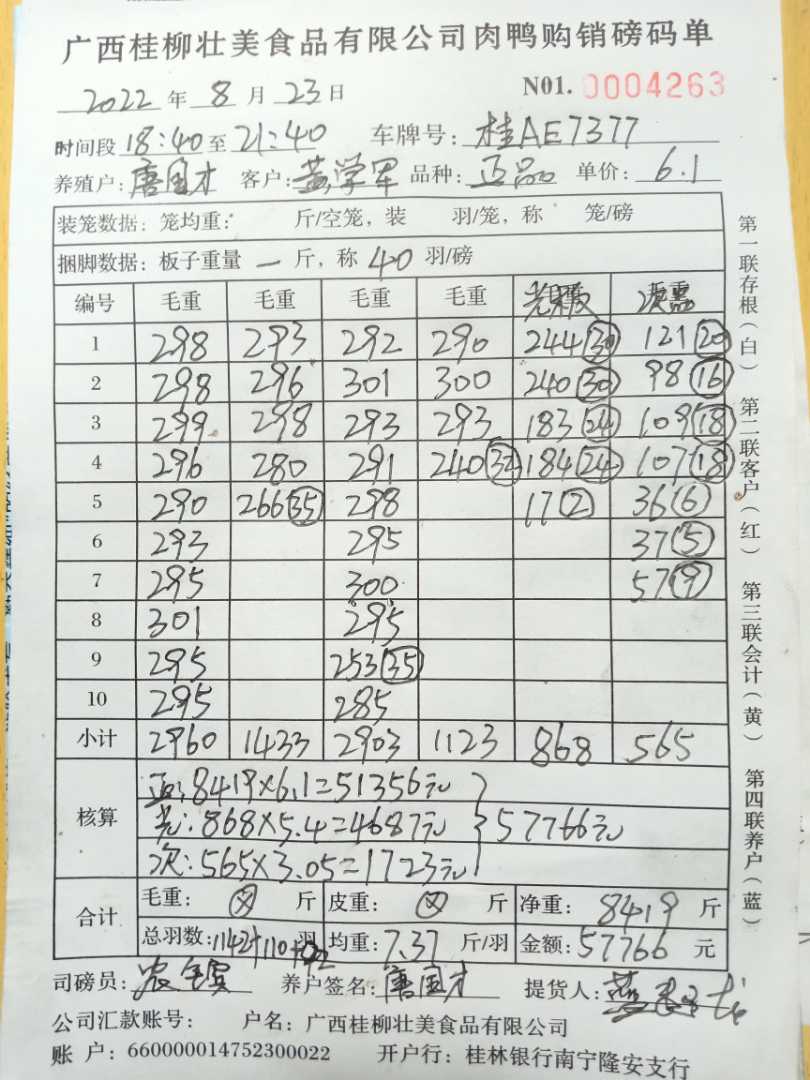 广西桂柳壮美食品有限公司肉鸭购销磅码单
N01. 0004263
2022 年 8 月 23 日
时间段 18:40 至 21:40 车牌号: 桂AE7377
养殖户: 唐国才 客户: 黄学军 品种: 正品 单价: 6.1
装笼数据: 笼均重: 斤/空笼, 装 羽/笼, 称 笼/磅
捆脚数据: 板子重量 一 斤, 称 40 羽/磅
编号 毛重 毛重 毛重 毛重
1 298 293 292 290 244(30) 121(20)
2 298 296 301 300 240(30) 98(16)
3 299 298 293 293 183(24) 109(18)
4 296 280 291 240(32) 184(24) 107(18)
5 290 266(35) 298 17(2) 36(6)
6 293 295 37(5)
7 295 300 57(9)
8 301 295
9 295 253(35)
10 295 285
小计 2960 1433 2903 1123 868 565
核算
正: 8419×6.1=51356元
光: 868×5.4=4687元 57766元
次: 565×3.05=1723元
合计
毛重: 斤 皮重: 斤 净重: 8419 斤
总羽数: 1142+110+92 羽 均重: 7.37 斤/羽 金额: 57766 元
司磅员: 养户签名: 唐国才 提货人:
公司汇款账号: 户名: 广西桂柳壮美食品有限公司
账 户: 660000014752300022 开户行: 桂林银行南宁隆安支行
第一联存根(白) 第二联客户(红) 第三联会计(黄) 第四联养户(蓝)